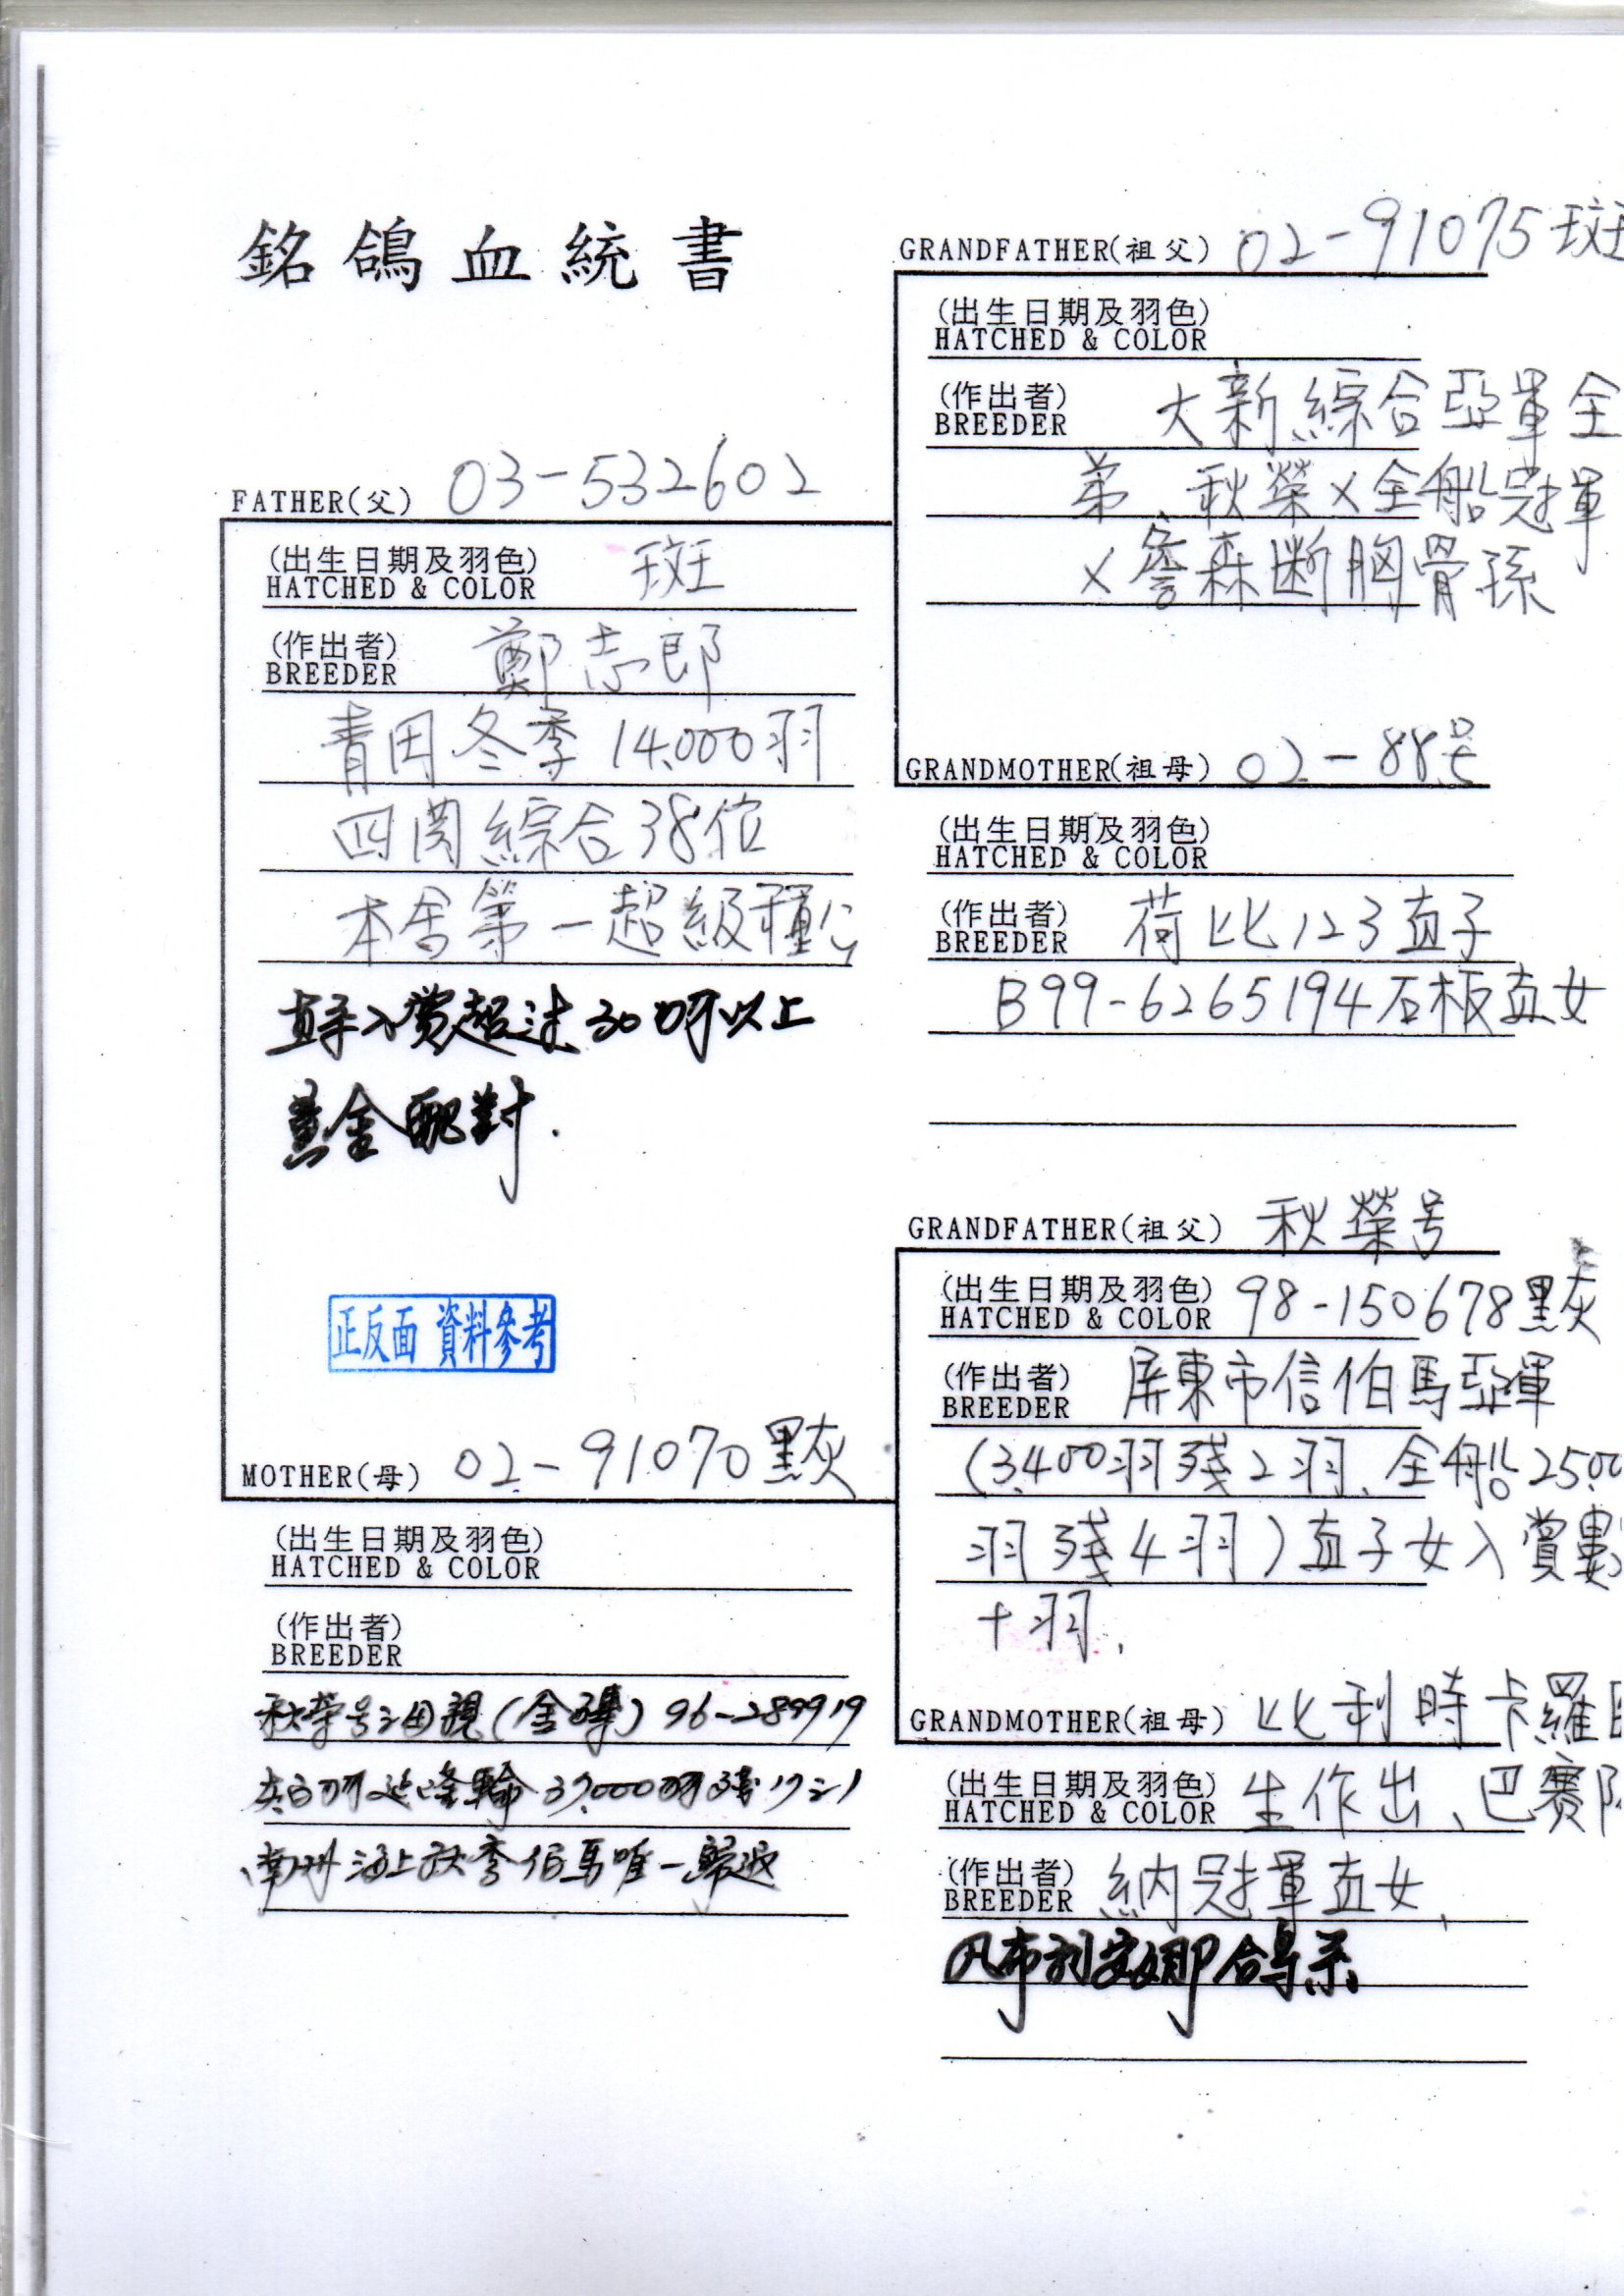 銘鴿血統書
FATHER(父) 03-532602
(出生日期及羽色) 斑
HATCHED & COLOR
(作出者) 鄭志郎
BREEDER
青田冬季 14,000羽
四関綜合38位
本舍第一超級種公
直子入賞超過30羽以上
黃金配對.
正反面 資料參考
MOTHER(母) 02-91070黑灰
(出生日期及羽色)
HATCHED & COLOR
(作出者)
BREEDER
秋榮号之母親(金磚)96-289919
37,000羽殘17之1
南州海上秋季伯馬唯一歸返
GRANDFATHER(祖父) 02-91075斑
(出生日期及羽色)
HATCHED & COLOR
(作出者) 大新綜合亞軍全
BREEDER
弟 秋榮x全船冠軍
x詹森断胸骨孫
GRANDMOTHER(祖母) 02-88号
(出生日期及羽色)
HATCHED & COLOR
(作出者) 荷比123直子
BREEDER
B99-6265194石板直女
GRANDFATHER(祖父) 秋榮号
(出生日期及羽色) 98-150678黑灰
HATCHED & COLOR
(作出者) 屏東市信伯馬亞軍
BREEDER
(3,400羽殘2羽、全船25,00
羽殘4羽)直子女入賞數
十羽.
GRANDMOTHER(祖母) 比利時卡羅
(出生日期及羽色) 生作出、巴賽
HATCHED & COLOR
(作出者) 納冠軍直女、
BREEDER
凡布利安娜